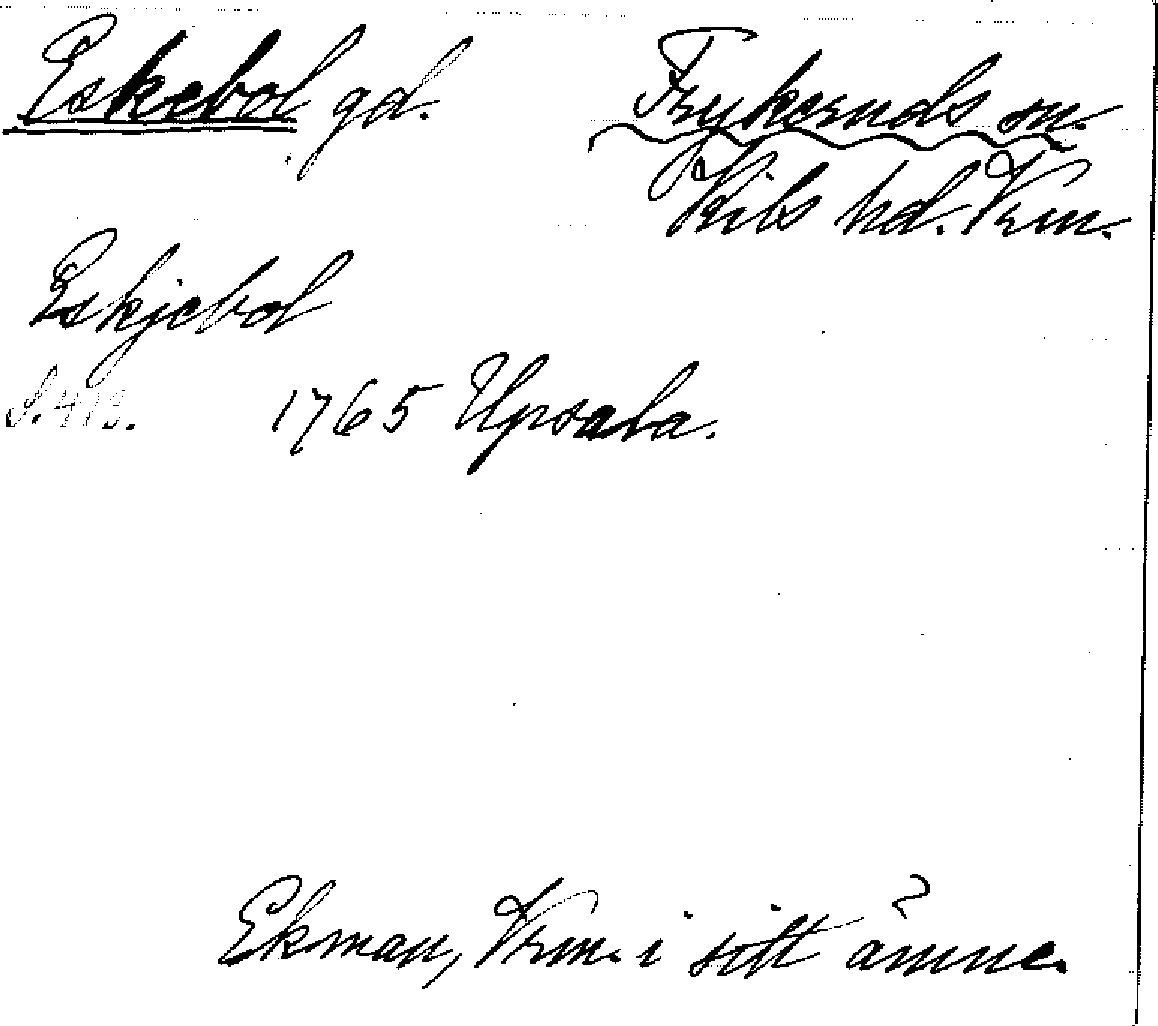 Eskebol gd.
Frykeruds sn.
Kils hd. Vrm.
Eskjebol
S. 413.
1765 Upsala.
Ekman, Vrm. i sitt ämne.